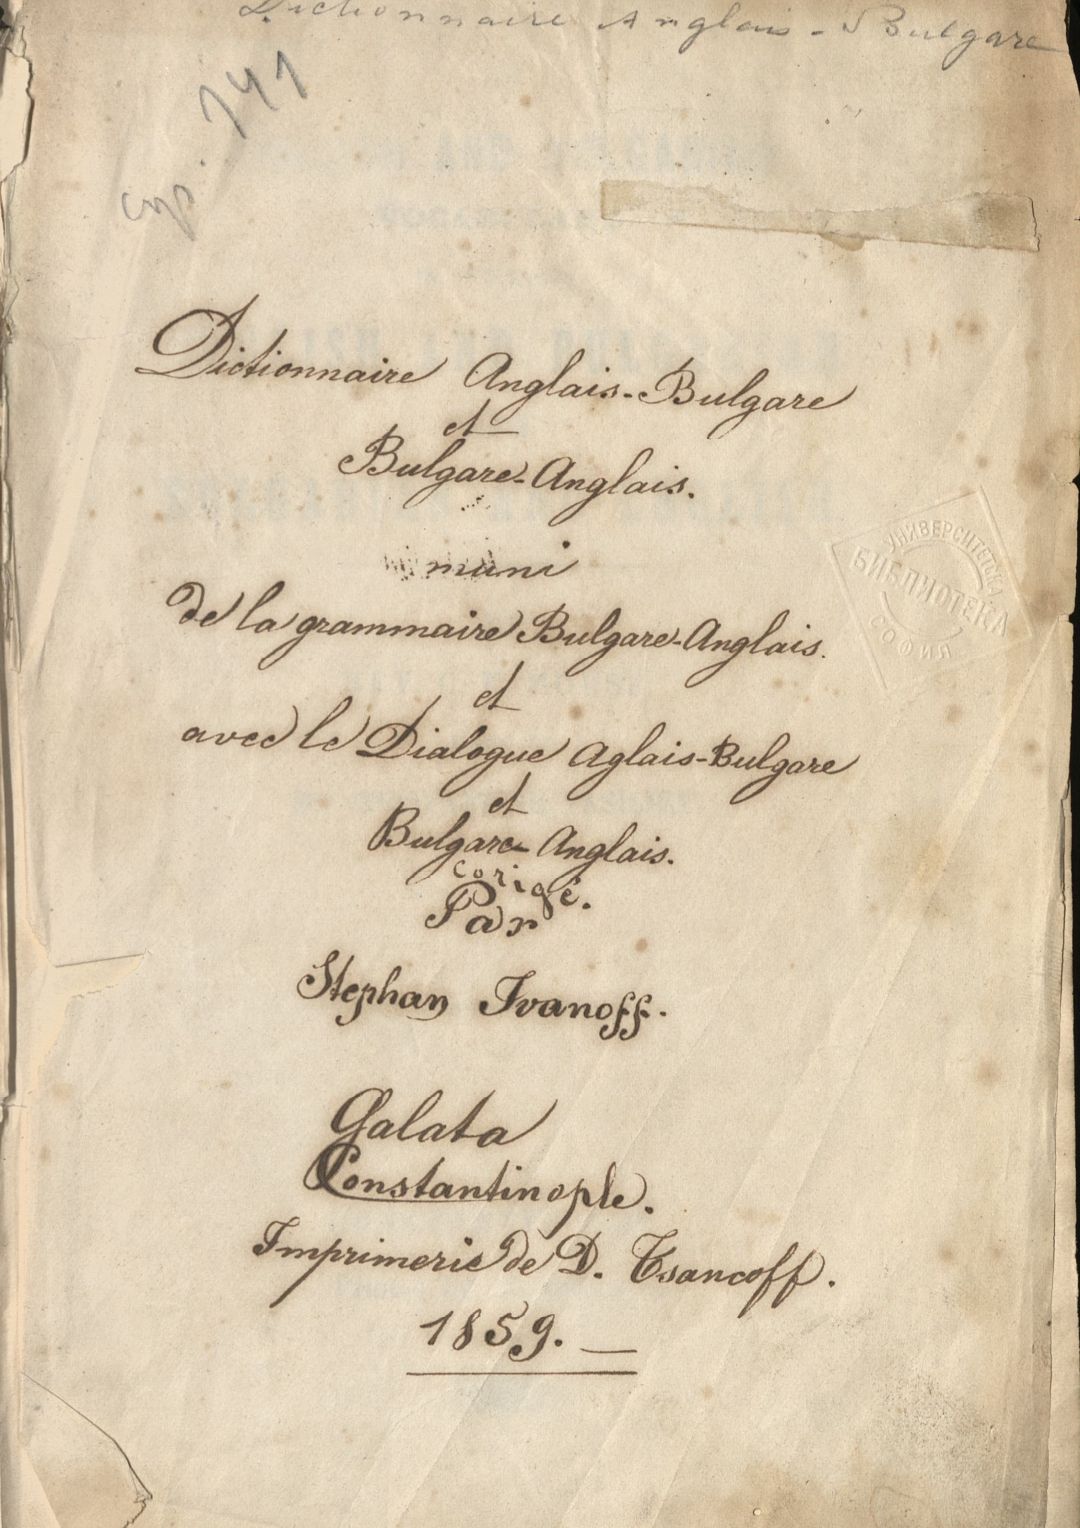 Dictionnaire Anglais-Bulgare
стр. 141
Dictionnaire Anglais-Bulgare
et
Bulgare-Anglais.
muni
de la grammaire Bulgare-Anglais.
et
avec le Dialogue Aglais-Bulgare
et
Bulgare-Anglais.
corigé.
Par
Stephan Ivanoff.
Galata
Constantinople.
Imprimerie de D. Tsancoff.
1859.
УНИВЕРСИТЕТСКА
БИБЛИОТЕКА
СОФИЯ